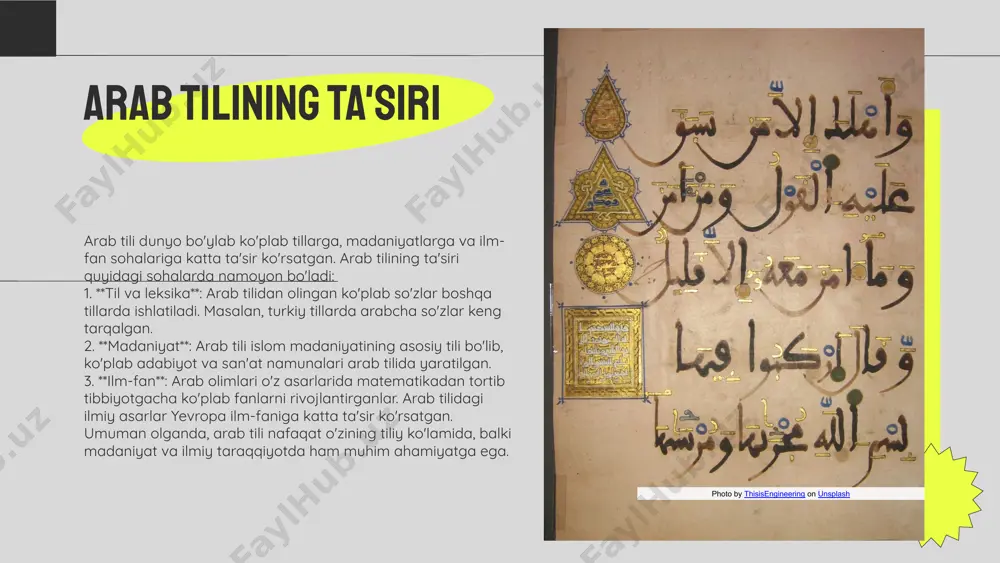 ARAB TILINING TA'SIRI
Arab tili dunyo bo'ylab ko'plab tillarga, madaniyatlarga va ilm-
fan sohalariga katta ta'sir ko'rsatgan. Arab tilining ta'siri
quyidagi sohalarda namoyon bo'ladi:
1. **Til va leksika**: Arab tilidan olingan ko'plab so'zlar boshqa
tillarda ishlatiladi. Masalan, turkiy tillarda arabcha so'zlar keng
tarqalgan.
2. **Madaniyat**: Arab tili islom madaniyatining asosiy tili bo'lib,
ko'plab adabiyot va san'at namunalari arab tilida yaratilgan.
3. **Ilm-fan**: Arab olimlari o'z asarlarida matematikadan tortib
tibbiyotgacha ko'plab fanlarni rivojlantirganlar. Arab tilidagi
ilmiy asarlar Yevropa ilm-faniga katta ta'sir ko'rsatgan.
Umuman olganda, arab tili nafaqat o'zining tiliy ko'lamida, balki
madaniyat va ilmiy taraqqiyotda ham muhim ahamiyatga ega.
وأهلك إلا من سبق
عليه القول ومن آمن
وما آمن معه إلا قليل
وقال اركبوا فيها
بسم الله مجراها ومرساها
Photo by ThisisEngineering on Unsplash
FaylHub.uz
FaylHub.uz
FaylHub.uz
FaylHub.uz